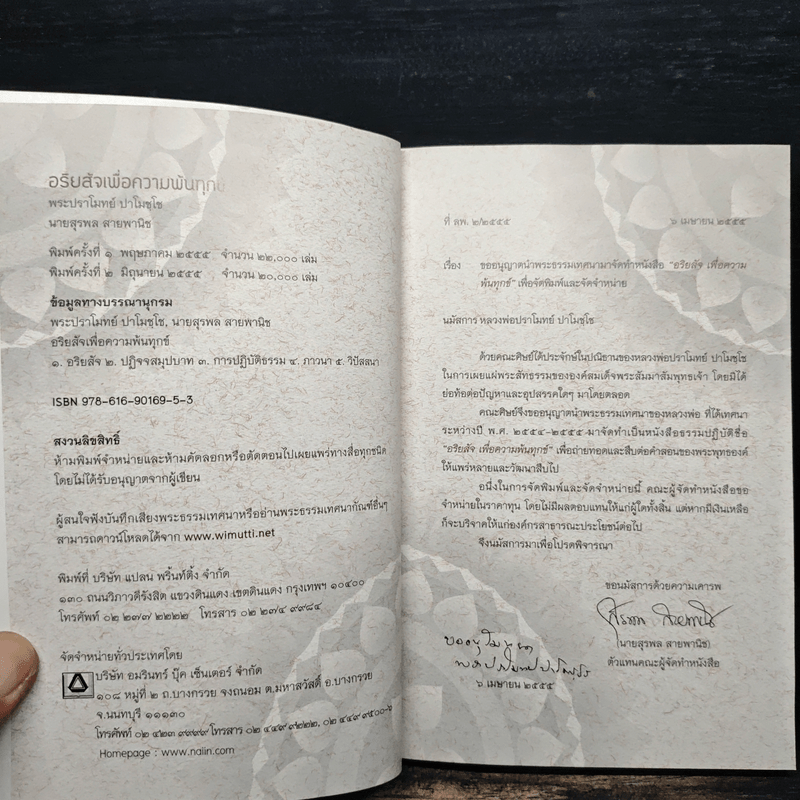 อริยสัจเพื่อความพ้นทุกข์
พระปราโมทย์ ปาโมชฺโช
นายสุรพล สายพานิช
พิมพ์ครั้งที่ ๑ พฤษภาคม ๒๕๕๕ จำนวน ๒๒,๐๐๐ เล่ม
พิมพ์ครั้งที่ ๒ มิถุนายน ๒๕๕๕ จำนวน ๒๐,๐๐๐ เล่ม
ข้อมูลทางบรรณานุกรม
พระปราโมทย์ ปาโมชฺโช, นายสุรพล สายพานิช
อริยสัจเพื่อความพ้นทุกข์
๑. อริยสัจ ๒. ปฏิจจสมุปบาท ๓. การปฏิบัติธรรม ๔. ภาวนา ๕. วิปัสสนา
ISBN 978-616-90169-5-3
สงวนลิขสิทธิ์
ห้ามพิมพ์จำหน่ายและห้ามคัดลอกหรือตัดตอนไปเผยแพร่ทางสื่อทุกชนิด
โดยไม่ได้รับอนุญาตจากผู้เขียน
ผู้สนใจฟังบันทึกเสียงพระธรรมเทศนาหรืออ่านพระธรรมเทศนากัณฑ์อื่นๆ
สามารถดาวน์โหลดได้จาก www.wimutti.net
พิมพ์ที่ บริษัท แปลน พริ้นท์ติ้ง จำกัด
๑๓๐ ถนนวิภาวดีรังสิต แขวงดินแดง เขตดินแดง กรุงเทพฯ ๑๐๔๐๐
โทรศัพท์ ๐๒ ๒๗๗ ๒๒๒๒ โทรสาร ๐๒ ๒๗๔ ๙๙๘๔
จัดจำหน่ายทั่วประเทศโดย
บริษัท อมรินทร์ บุ๊ค เซ็นเตอร์ จำกัด
๑๐๘ หมู่ที่ ๒ ถ.บางกรวย จงถนอม ต.มหาสวัสดิ์ อ.บางกรวย
จ.นนทบุรี ๑๑๑๓๐
โทรศัพท์ ๐๒ ๔๒๓ ๙๙๙๙ โทรสาร ๐๒ ๔๔๙ ๙๒๒๒, ๐๒ ๔๔๙ ๙๕๐๐-๖
Homepage : www.naiin.com
ที่ ลพ. ๒/๒๕๕๕ ๖ เมษายน ๒๕๕๕
เรื่อง ขออนุญาตนำพระธรรมเทศนามาจัดทำหนังสือ "อริยสัจ เพื่อความ
พ้นทุกข์" เพื่อจัดพิมพ์และจัดจำหน่าย
นมัสการ หลวงพ่อปราโมทย์ ปาโมชฺโช
ด้วยคณะศิษย์ได้ประจักษ์ในปณิธานของหลวงพ่อปราโมทย์ ปาโมชฺโช
ในการเผยแผ่พระสัทธรรมขององค์สมเด็จพระสัมมาสัมพุทธเจ้า โดยมิได้
ย่อท้อต่อปัญหาและอุปสรรคใดๆ มาโดยตลอด
คณะศิษย์จึงขออนุญาตนำพระธรรมเทศนาของหลวงพ่อ ที่ได้เทศนา
ระหว่างปี พ.ศ. ๒๕๕๔-๒๕๕๕ มาจัดทำเป็นหนังสือธรรมปฏิบัติชื่อ
"อริยสัจ เพื่อความพ้นทุกข์" เพื่อถ่ายทอดและสืบต่อคำสอนของพระพุทธองค์
ให้แพร่หลายและวัฒนาสืบไป
อนึ่งในการจัดพิมพ์และจัดจำหน่ายนี้ คณะผู้จัดทำหนังสือขอ
จำหน่ายในราคาทุน โดยไม่มีผลตอบแทนให้แก่ผู้ใดทั้งสิ้น แต่หากมีเงินเหลือ
ก็จะบริจาคให้แก่องค์กรสาธารณะประโยชน์ต่อไป
จึงนมัสการมาเพื่อโปรดพิจารณา
ขอนมัสการด้วยความเคารพ
(นายสุรพล สายพานิช)
ตัวแทนคณะผู้จัดทำหนังสือ
ขออนุโมทนา
๖ เมษายน ๒๕๕๕